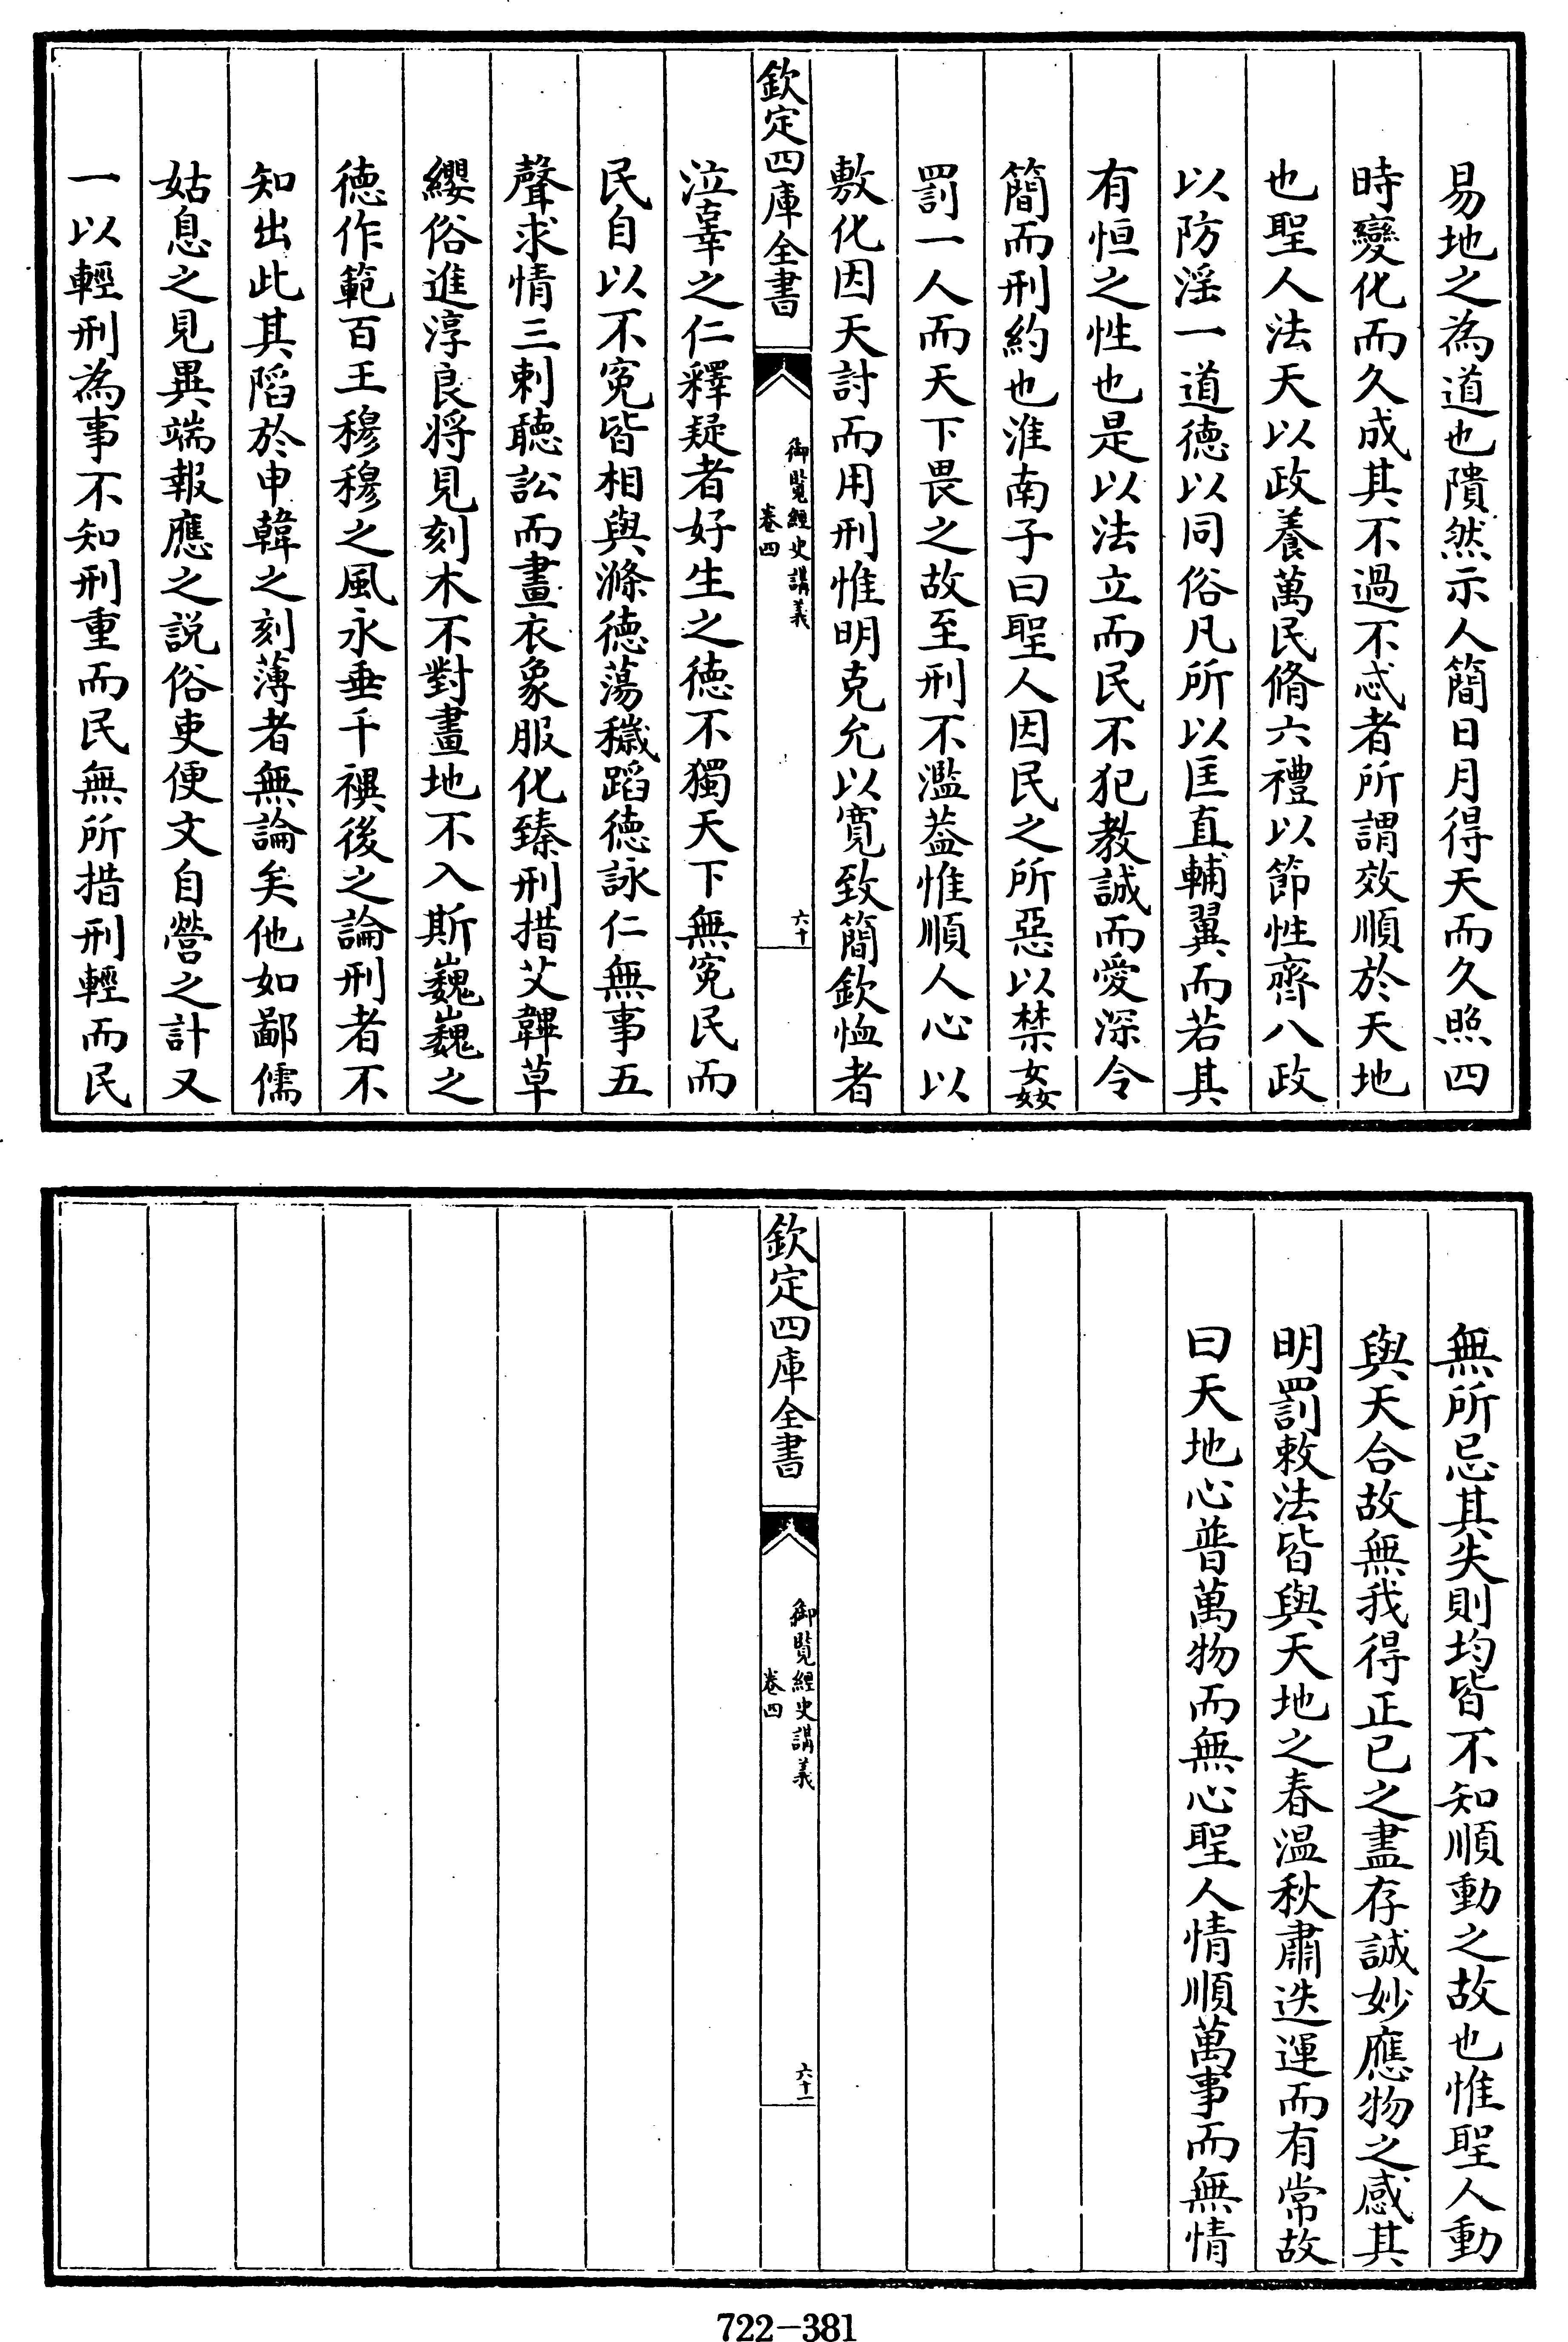 易地之為道也隤然示人簡日月得天而久照四
時變化而久成其不過不忒者所謂效順於天地
也聖人法天以政養萬民脩六禮以節性齊八政
以防淫一道德以同俗凡所以匡直輔翼而若其
有恒之性也是以法立而民不犯教誠而愛深令
簡而刑約也淮南子曰聖人因民之所惡以禁姦
罰一人而天下畏之故至刑不濫葢惟順人心以
敷化因天討而用刑惟明克允以寛致簡欽恤者
欽定四庫全書
御覽經史講義
卷四
六十
泣辜之仁釋疑者好生之德不獨天下無寃民而
民自以不寃皆相與滌德蕩穢蹈德詠仁無事五
聲求情三刺聽訟而畫衣象服化臻刑措艾韠草
纓俗進淳良將見刻木不對畫地不入斯巍巍之
德作範百王穆穆之風永垂千禩後之論刑者不
知出此其陷於申韓之刻薄者無論矣他如鄙儒
姑息之見異端報應之説俗吏便文自營之計又
一以輕刑為事不知刑重而民無所措刑輕而民
無所忌其失則均皆不知順動之故也惟聖人動
與天合故無我得正已之盡存誠妙應物之感其
明罰敕法皆與天地之春温秋肅迭運而有常故
曰天地心普萬物而無心聖人情順萬事而無情
欽定四庫全書
御覽經史講義
卷四
六十一
722-381